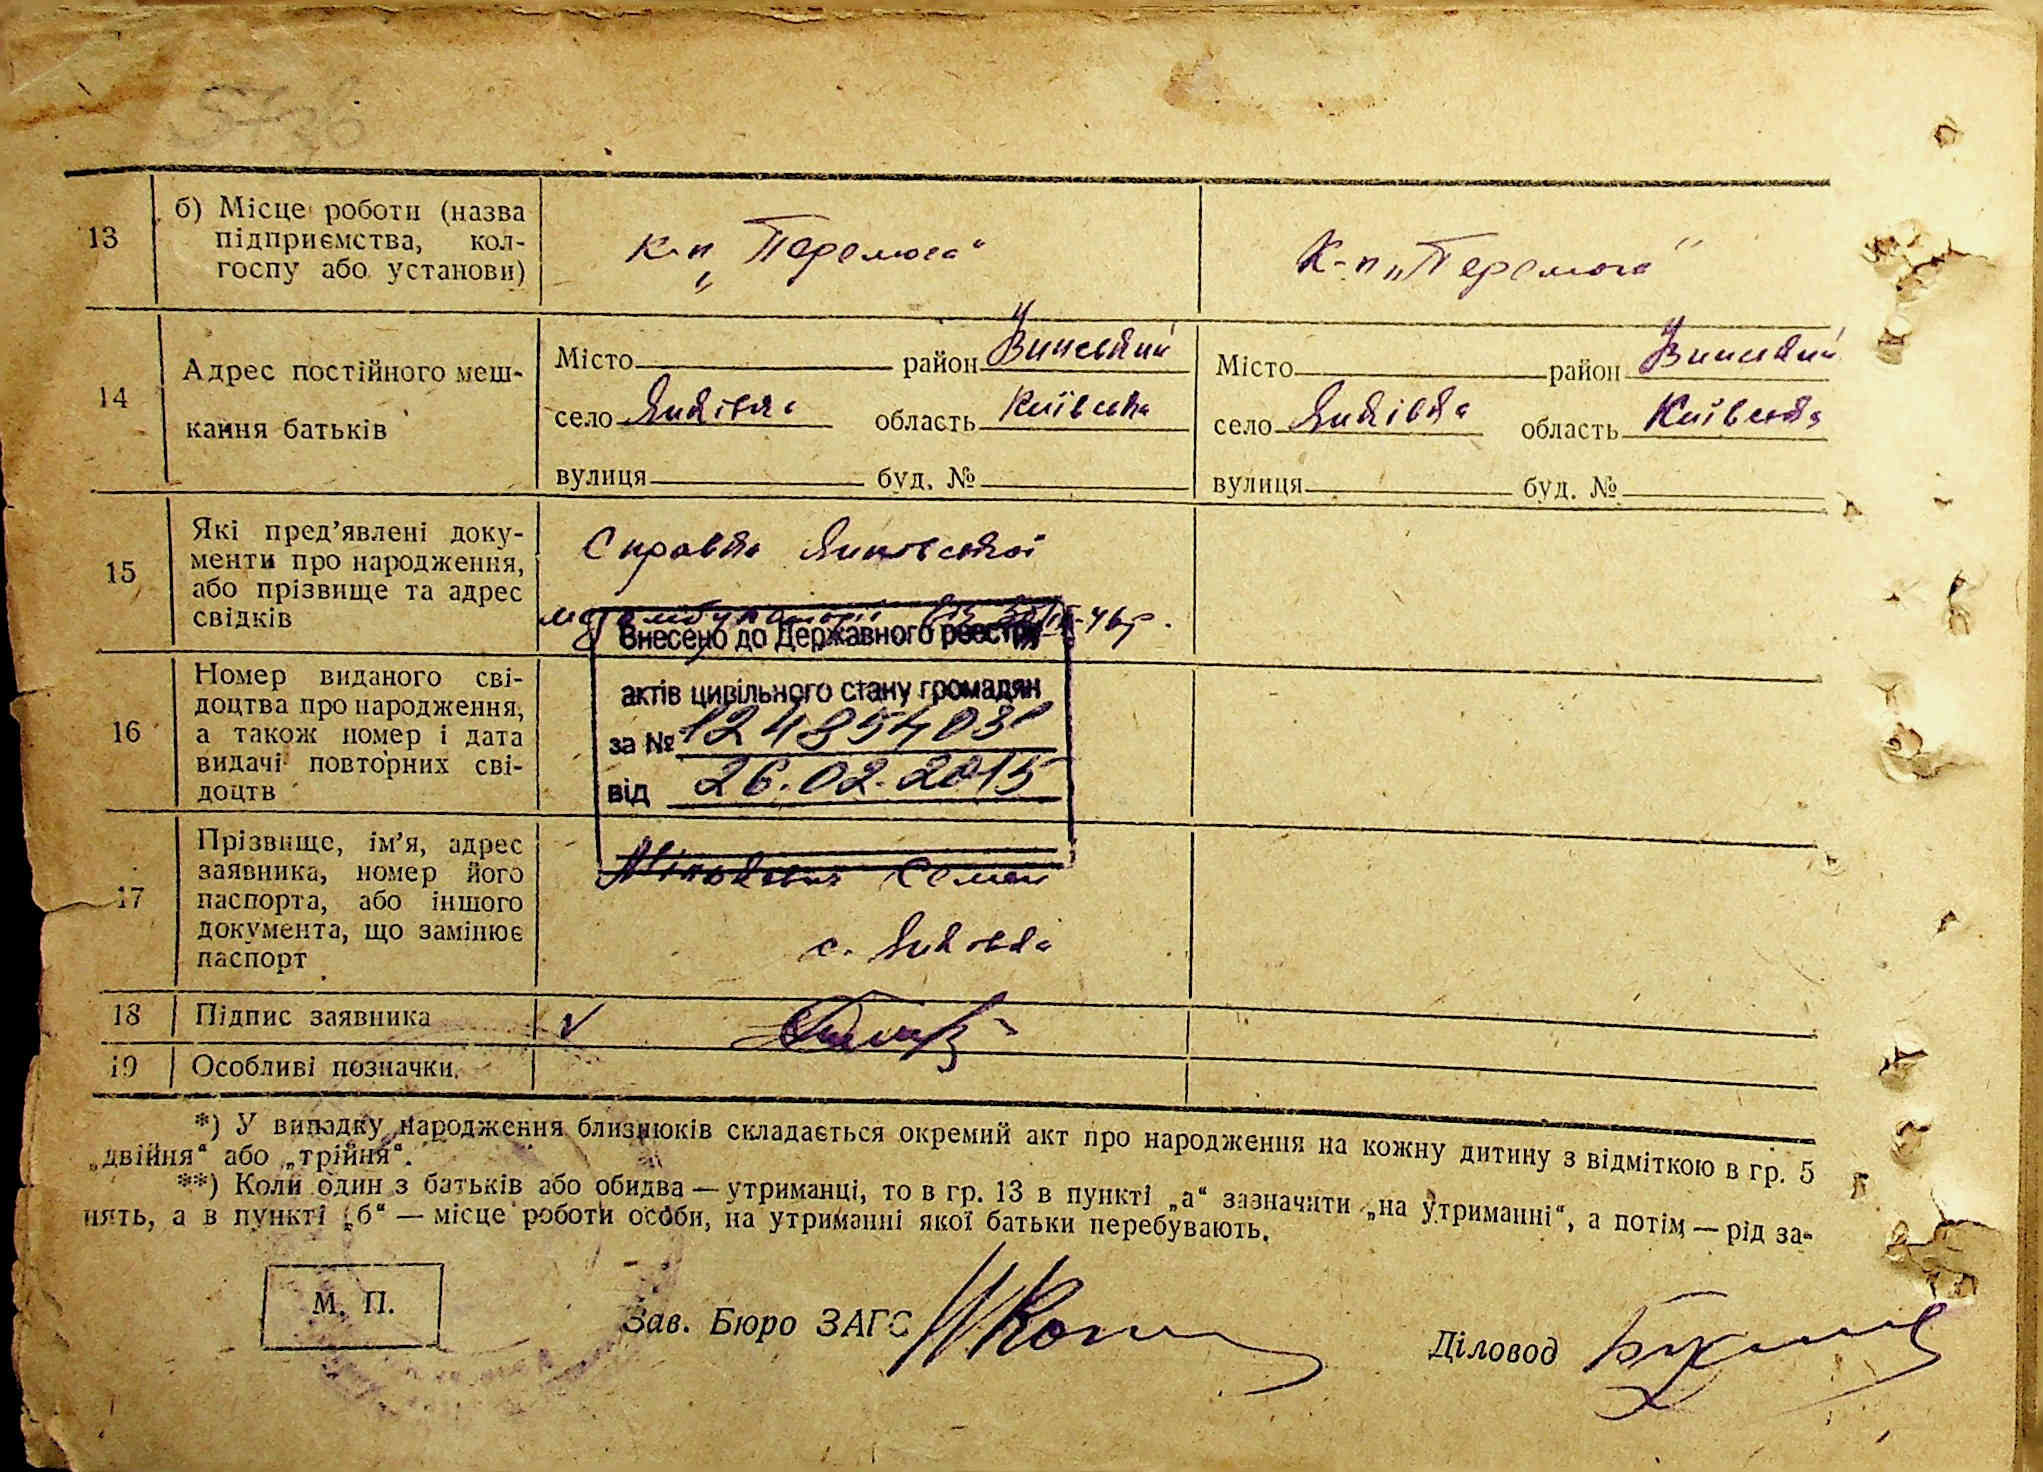 5736
13
б) Місце роботи (назва
підприємства, кол-
госпу або установи)
К-п „Перемога“
К-п „Перемога“
14
Адрес постійного меш-
кання батьків
Місто район
село область Київська
вулиця буд. №
Місто район
село область Київська
вулиця буд. №
15
Які пред’явлені доку-
менти про народження,
або прізвище та адрес
свідків
Справка
Внесено до Державного реєстру
актів цивільного стану громадян
за №
від 26.02.2015
16
Номер виданого сві-
доцтва про народження,
а також номер і дата
видачі повторних сві-
доцтв
17
Прізвище, ім’я, адрес
заявника, номер його
паспорта, або іншого
документа, що замінює
паспорт
Семен
с.
18
Підпис заявника
19
Особливі позначки.
*) У випадку народження близнюків складається окремий акт про народження на кожну дитину з відміткою в гр. 5
„двійня“ або „трійня“.
**) Коли один з батьків або обидва — утриманці, то в гр. 13 в пункті „а“ зазначити „на утриманні“, а потім — рід за-
нять, а в пункті „б“ — місце роботи особи, на утриманні якої батьки перебувають.
М. П.
Зав. Бюро ЗАГС
Діловод